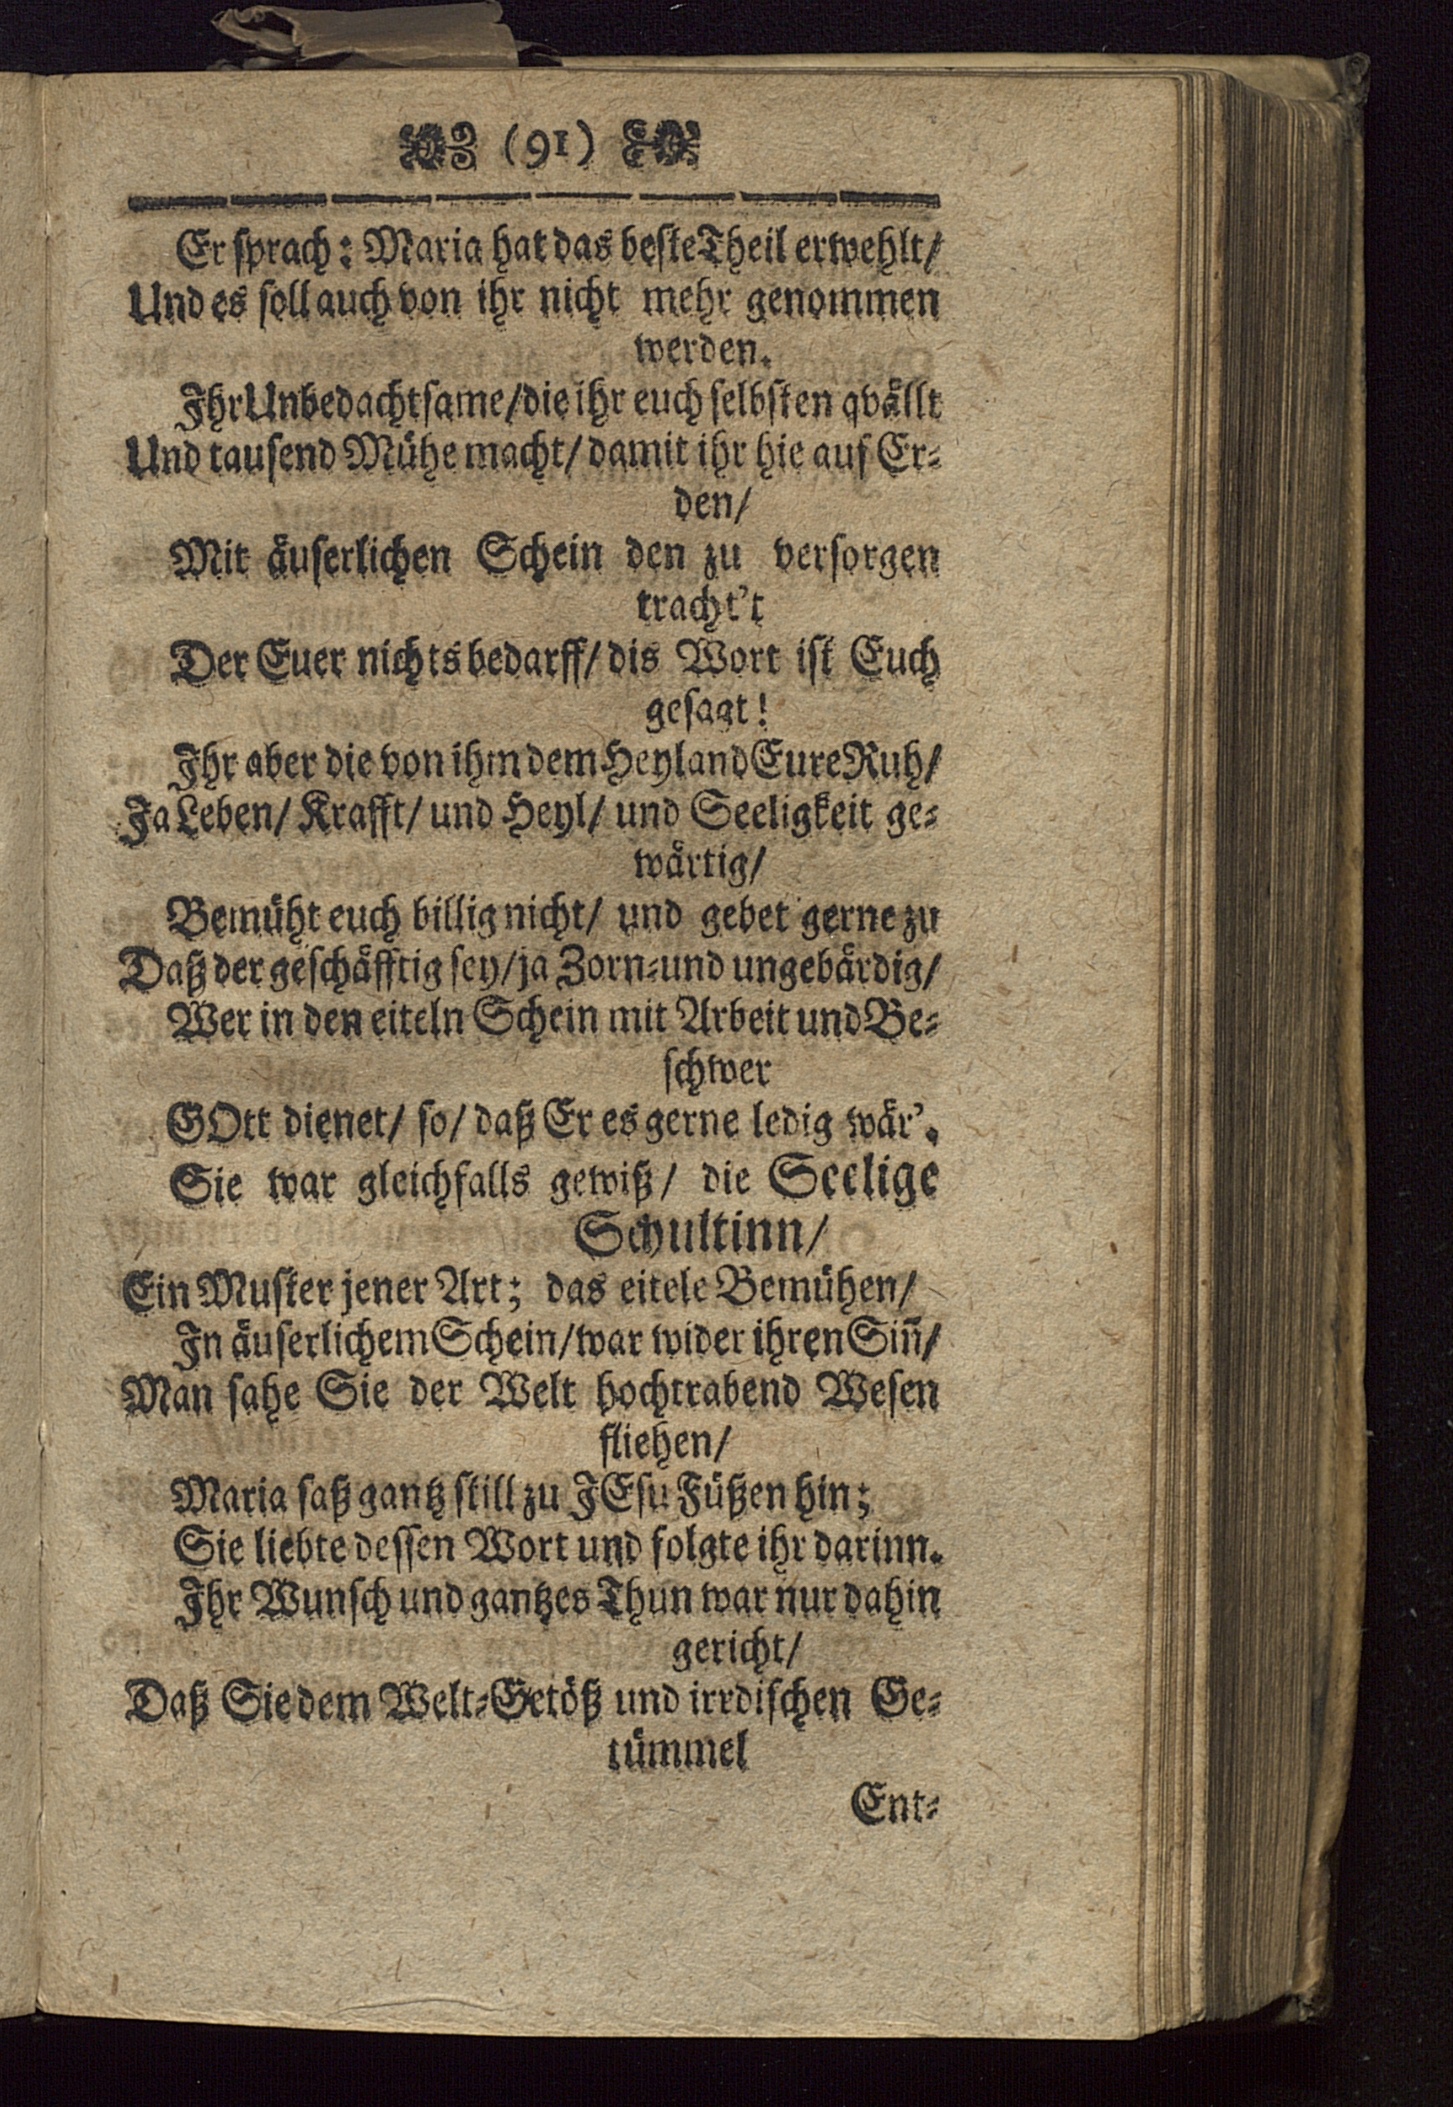 (91)
Er sprach: Maria hat das beste Theil erwehlt/
Und es soll auch von ihr nicht mehr genommen
werden.
Ihr Unbedachtsame/ die ihr euch selbsten qvällt
Und tausend Mühe macht/ damit ihr hie auf Er-
den/
Mit äuserlichen Schein den zu versorgen
tracht't
Der Euer nichts bedarff/ dis Wort ist Euch
gesagt!
Ihr aber die von ihm dem Heyland Eure Ruh/
Ja Leben/ Krafft/ und Heyl/ und Seeligkeit ge-
wärtig/
Bemüht euch billig nicht/ und gebet gerne zu
Daß der geschäfftig sey/ ja Zorn- und ungebärdig/
Wer in den eiteln Schein mit Arbeit und Be-
schwer
GOtt dienet/ so/ daß Er es gerne ledig wär'.
Sie war gleichfalls gewiß/ die Seelige
Schultinn/
Ein Muster jener Art; das eitele Bemühen/
In äuserlichem Schein/ war wider ihren Siñ/
Man sahe Sie der Welt hochtrabend Wesen
fliehen/
Maria saß gantz still zu JEsu Füßen hin;
Sie liebte dessen Wort und folgte ihr darinn.
Ihr Wunsch und gantzes Thun war nur dahin
gericht/
Daß Sie dem Welt-Getöß und irrdischen Ge-
tümmel
Ent-